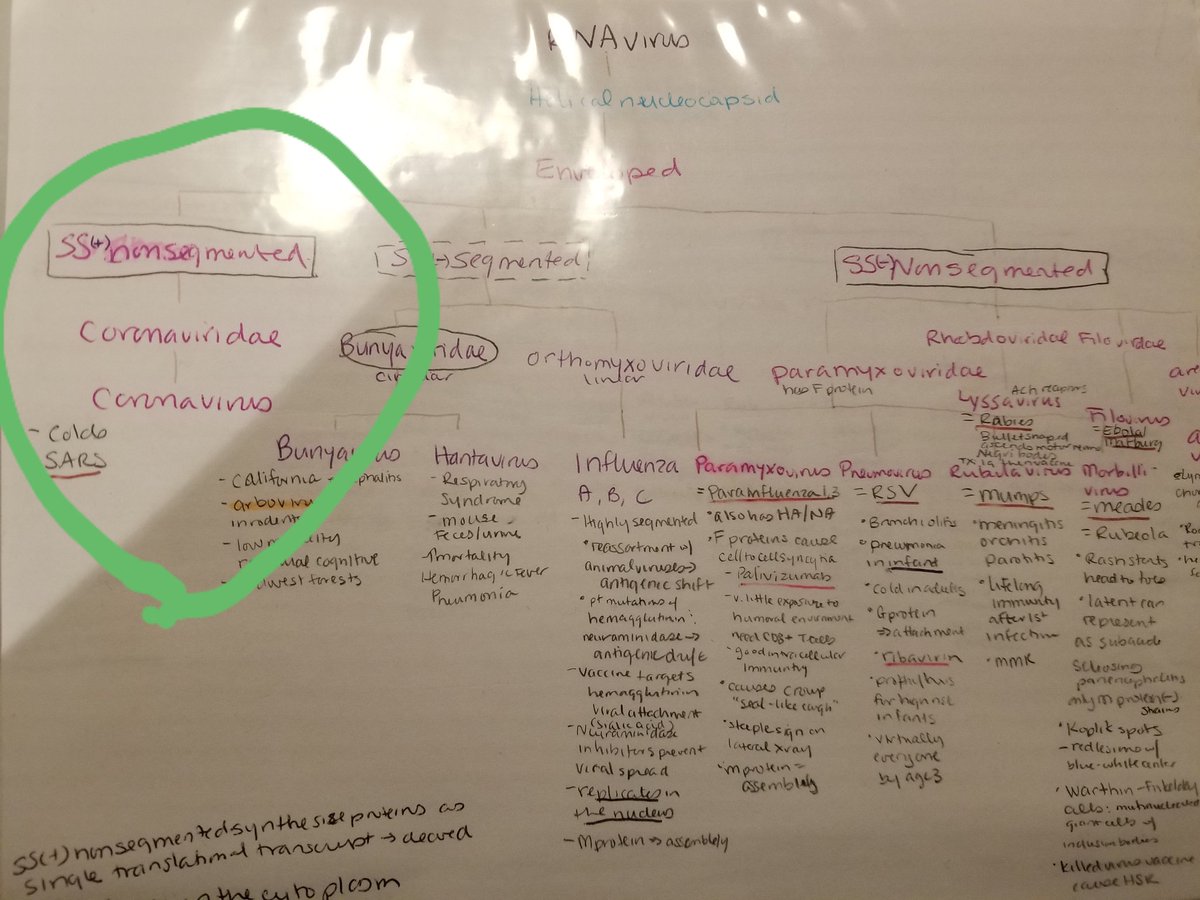 RNA virus
Helical nucleocapsid
Enveloped
SS(+) nonsegmented
Coronaviridae
Coronavirus
- Colds
SARS
SS(-) Segmented
Bunyaviridae
circular
Bunyavirus
- California encephalitis
- arbovirus
in rodents
- low mortality
residual cognitive
- midwest forests
Hantavirus
- Respiratory
Syndrome
- mouse
feces/urine
↑mortality
Hemorrhagic fever
Pneumonia
Orthomyxoviridae
linear
Influenza
A, B, C
- Highly segmented
• reassortment w/
animal viruses →
antigenic shift
• pt mutations of
hemagglutinin:
neuraminidase →
antigenic drift
- Vaccine targets
hemagglutinin
viral attachment
(sialic acid)
- Neuraminidase
inhibitors prevent
viral spread
- replicates in
the nucleus
- M protein → assembley
SS(-) Nonsegmented
paramyxoviridae
has F protein
Paramyxovirus
= Parainfluenza 1, 3
• also has HA/NA
• F proteins cause
cell to cell syncytia
- Palivizumab
- v. little exposure to
humoral environment
need CD8+ T cells
• good intracellular
immunity
• causes croup
"seal-like cough"
• steeple sign on
lateral xray
• m protein =
assembley
Pneumovirus
= RSV
• Bronchiolitis
• pneumonia
in infant
• Cold in adults
• G protein
⇒ attachment
• ribavirin
• prophylaxis
for high risk
infants
• virtually
everyone
by age 3
Rhabdoviridae
Ach receptors
Lyssavirus
= Rabies
Bullet shaped
ascends motor neurons
Negri bodies
Tx
Rubulavirus
= mumps
• meningitis
orchitis
parotitis
• lifelong
immunity
after 1st
infection
• MMR
Filoviridae
Filovirus
= Ebola/
Marburg
Morbilli-
virus
= meales
= Rubeola
• Rash starts
head to toes
• latent can
represent
as subacute
sclerosing
panencephalitis
only M protein(-)
strains
• Koplik spots
- red lesions w/
blue-white center
• Warthin-Finkeldey
cells: multinucleated
giant cells w/
inclusion bodies
• killed virus vaccine
cause HSR
SS(+) nonsegmented synthesise proteins as
single translational transcript → cleaved
in the cytoplasm